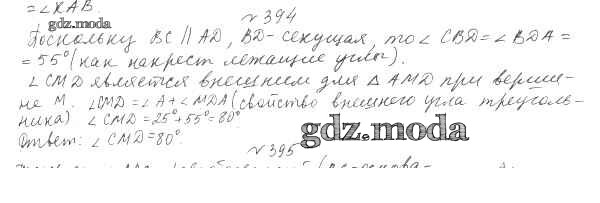 = ∠KAB.
№394
gdz.moda
Поскольку BC || AD, BD - секущая, то ∠CBD = ∠BDA =
= 55° (как накрест лежащие углы).
∠CMD является внешним для △AMD при верши-
не M. ∠CMD = ∠A + ∠MDA (свойство внешнего угла треуголь-
ника) ∠CMD = 25° + 55° = 80°
gdz.moda
Ответ: ∠CMD = 80°.
№395